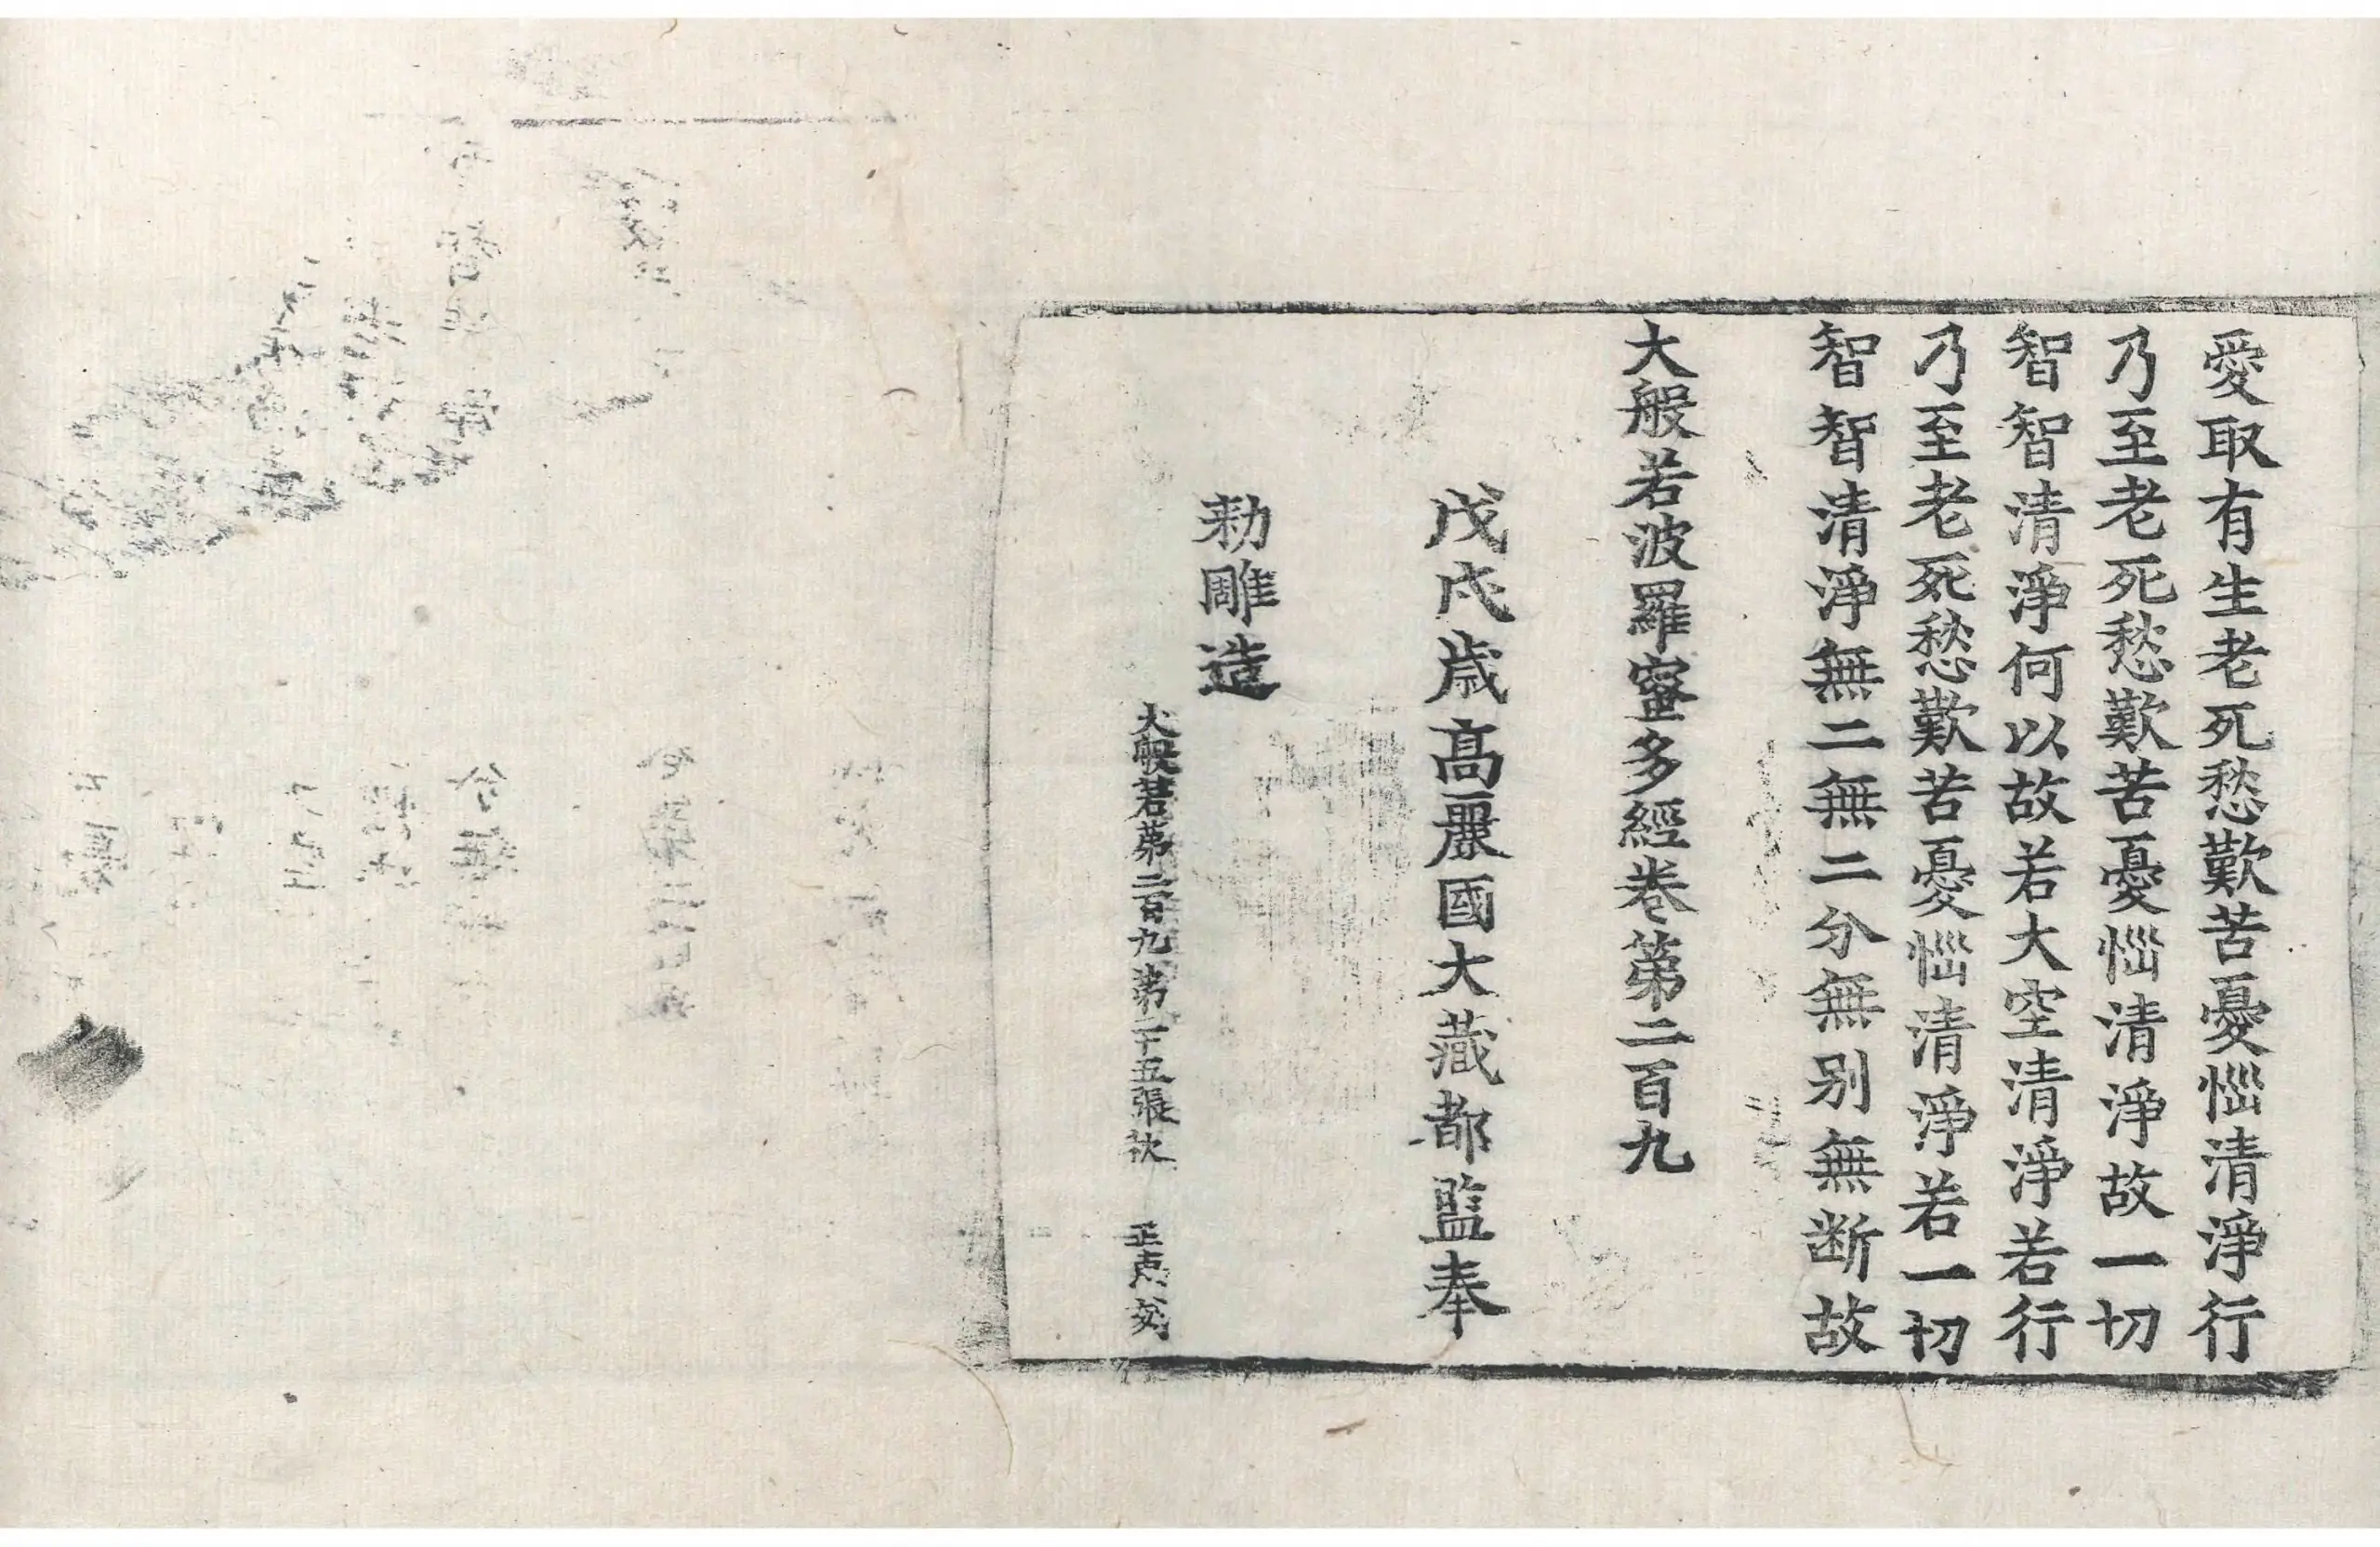 愛取有生老死愁歎苦憂惱清淨行
乃至老死愁歎苦憂惱清淨故一切
智智清淨何以故若大空清淨若行
乃至老死愁歎苦憂惱清淨若一切
智智清淨無二無二分無別無断故
大般若波羅蜜多經卷第二百九
戊戌歳髙麗國大藏都監奉
勑雕造
大般若第二百九 第二十五張 秋